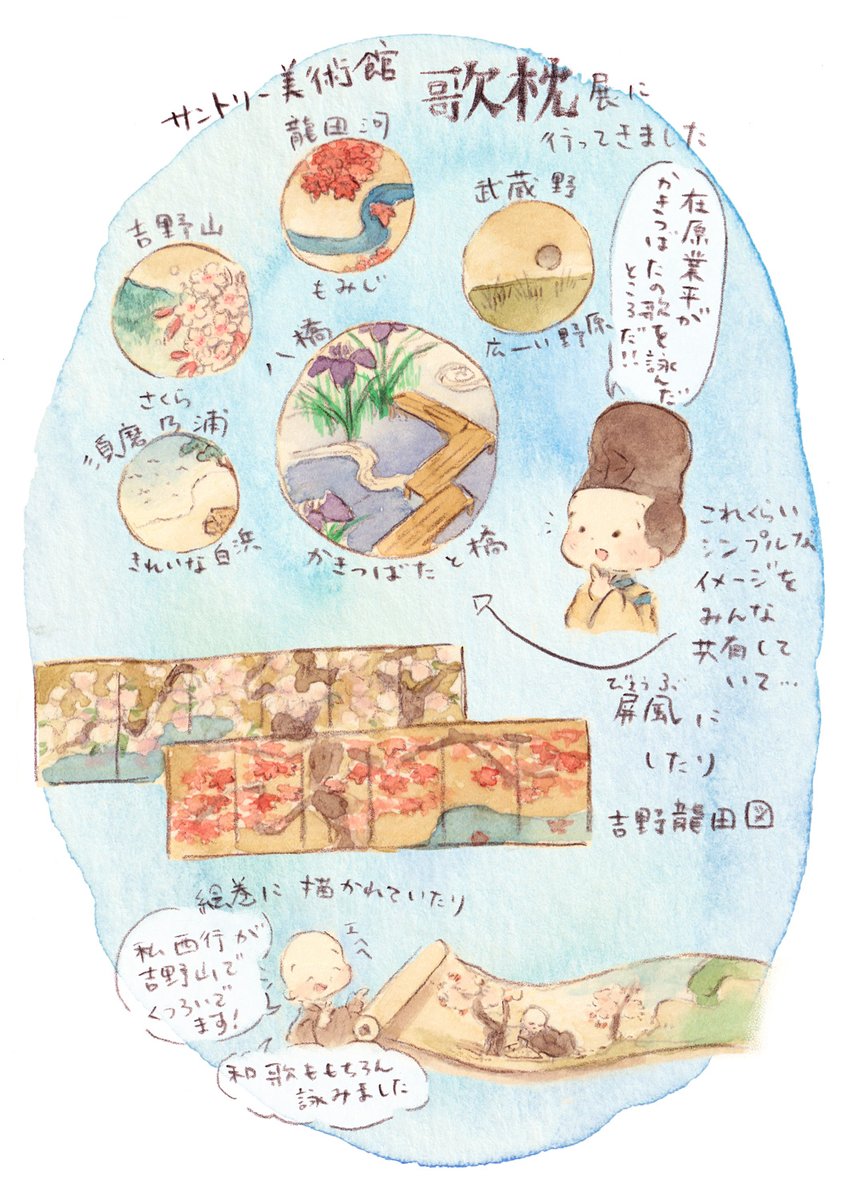 サントリー美術館 歌枕展に
行ってきました
龍田河
もみじ
武蔵野
広ーい野原
吉野山
さくら
八橋
かきつばたと橋
須磨乃浦
きれいな白浜
在原業平が
かきつばたの歌を詠んだ
ところだ!!
これくらい
シンプルな
イメージを
みんな
共有して
いて…
びょうぶ
屏風に
したり
吉野龍田図
絵巻に描かれていたり
私西行が
吉野山で
くつろいで
ます!
エヘヘ
和歌ももちろん
詠みました